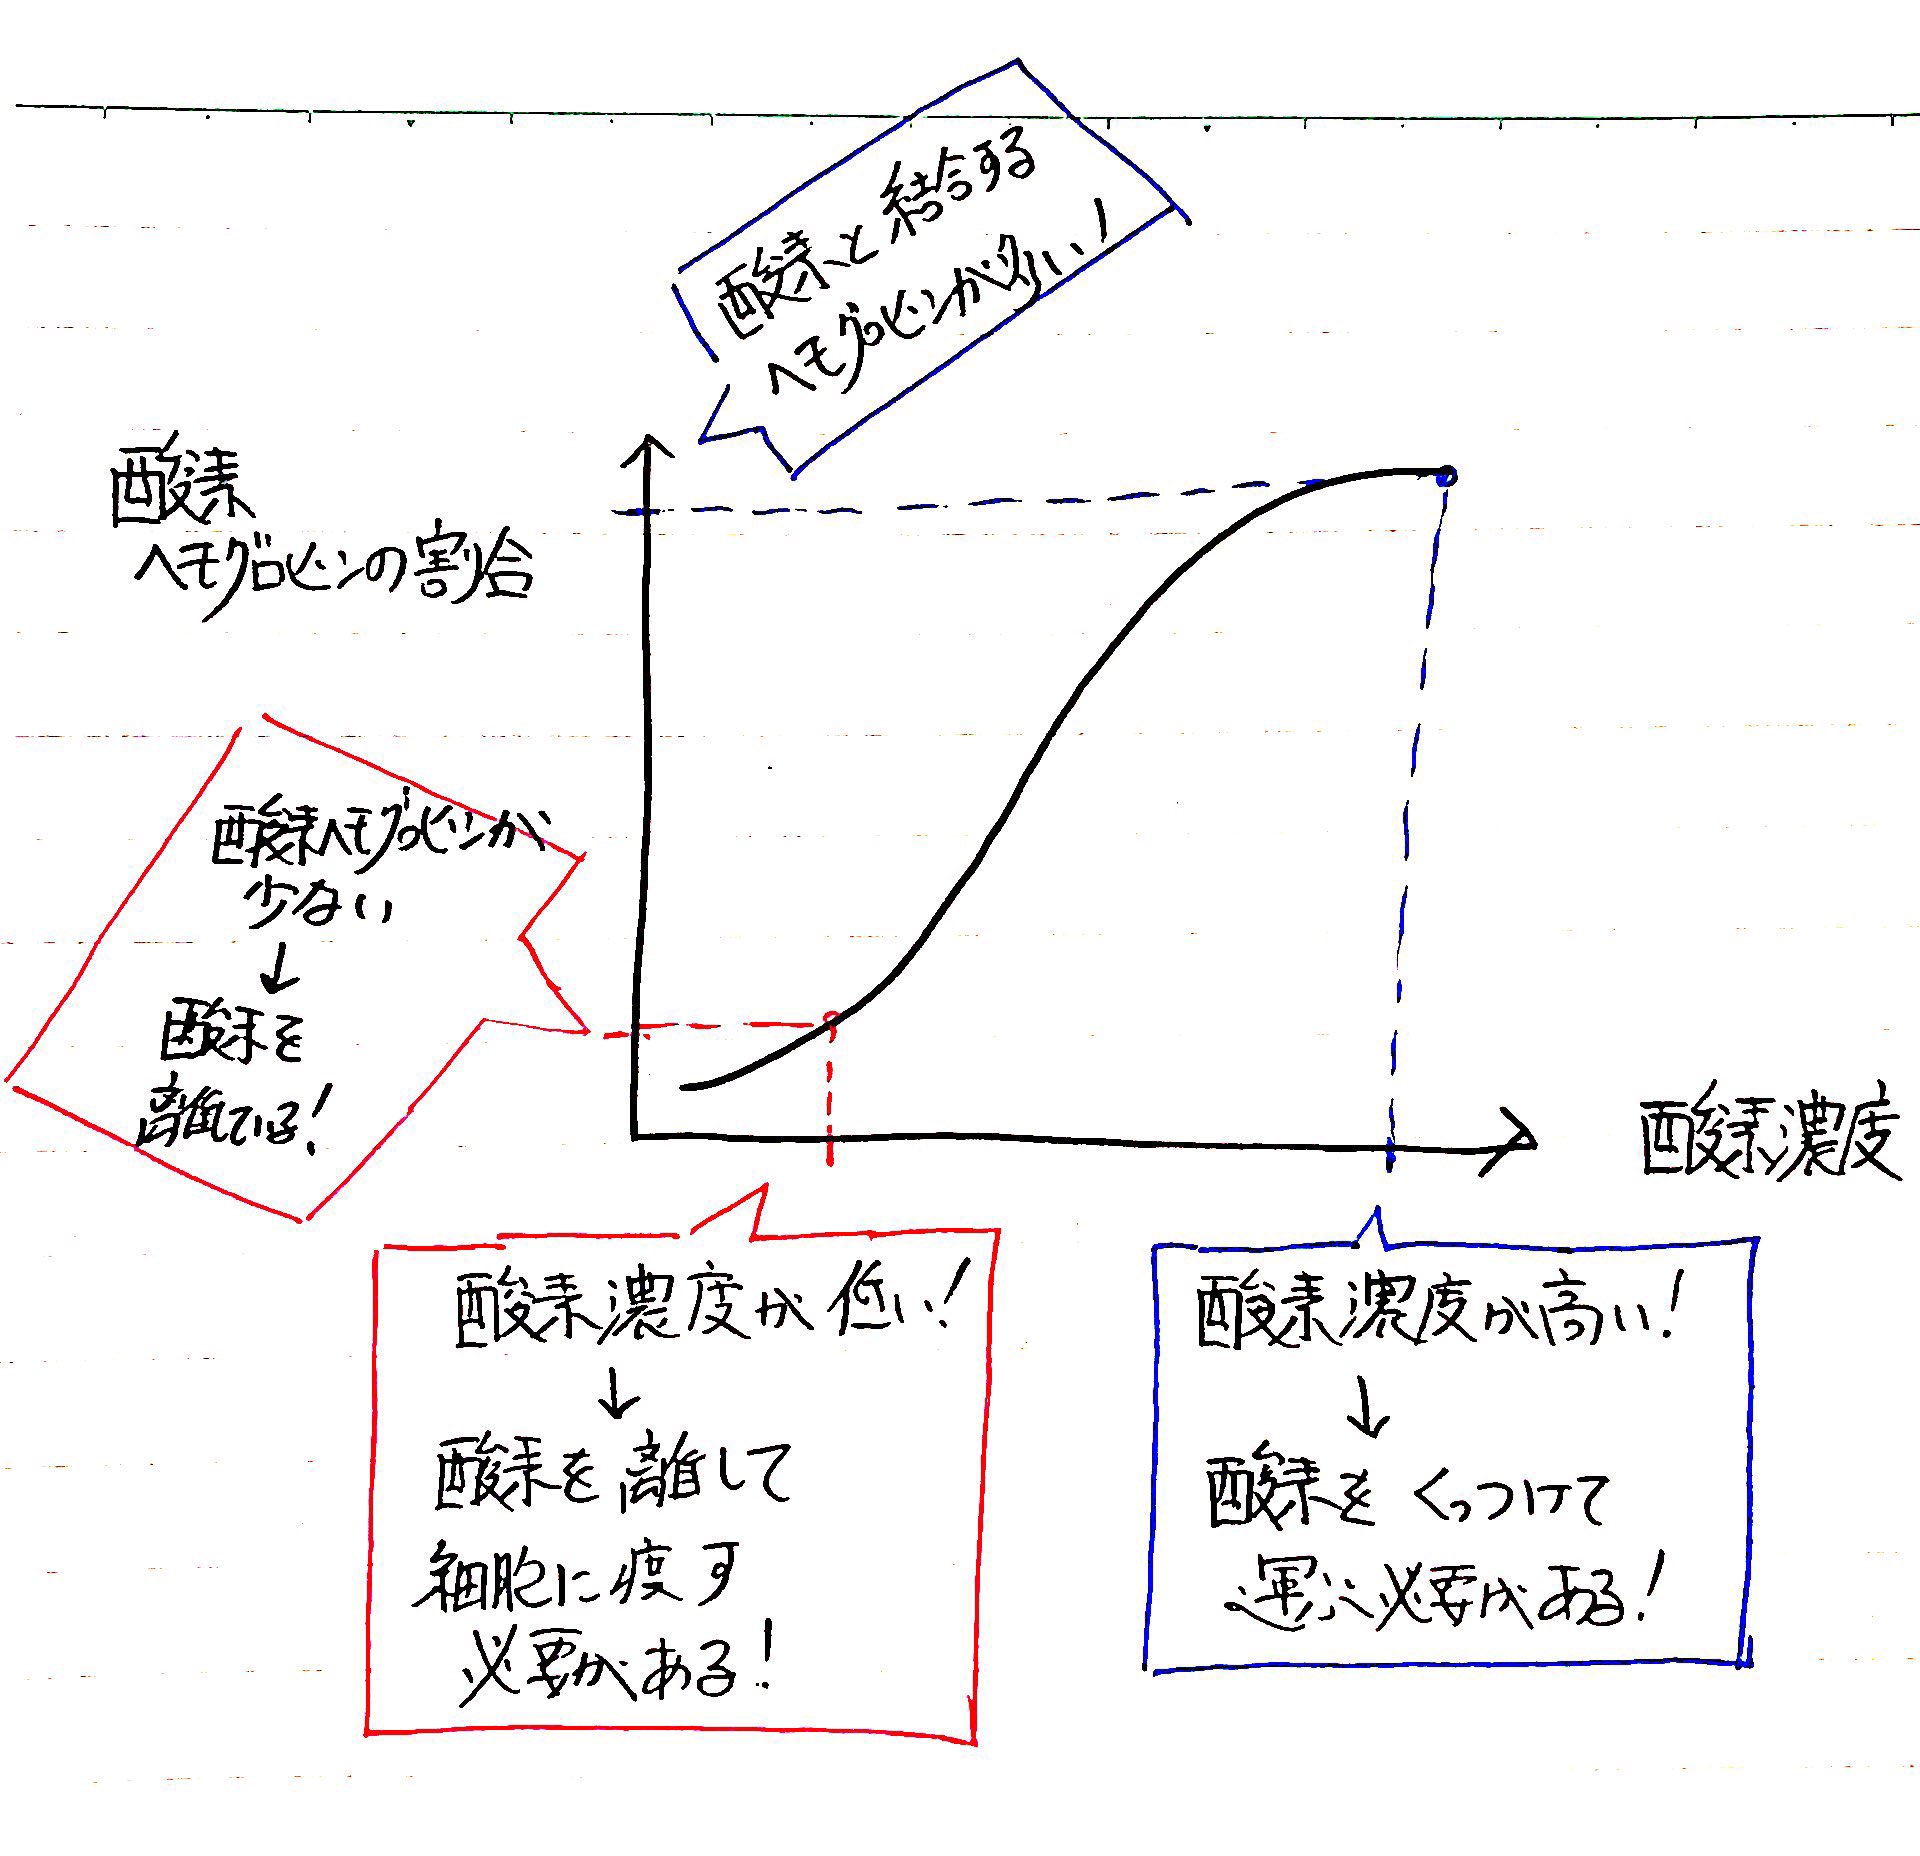 酸素と結合する
ヘモグロビンが多い!
酸素
ヘモグロビンの割合
酸素ヘモグロビンが
少ない
↓
酸素を
離している!
酸素濃度
酸素濃度が低い!
↓
酸素を離して
細胞に渡す
必要がある!
酸素濃度が高い!
↓
酸素をくっつけて
運ぶ必要がある!